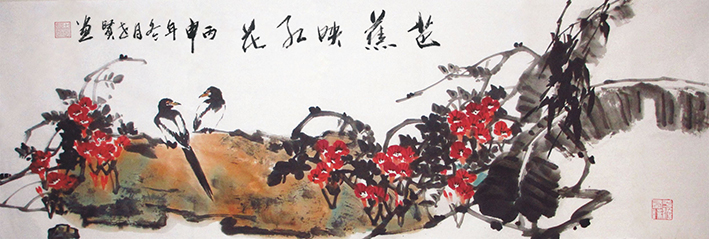 芭蕉映红花
丙申年冬月画